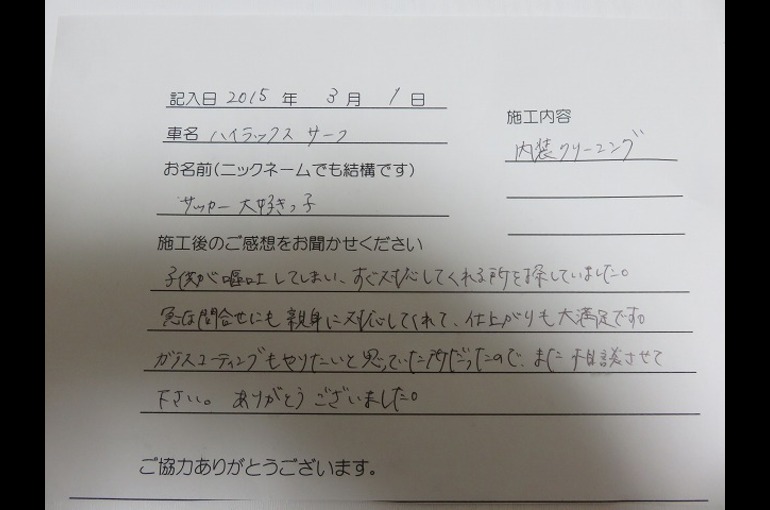 記入日 2015 年 3 月 1 日
施工内容
車名 ハイラックス サーフ
内装クリーニング
お名前(ニックネームでも結構です)
サッカー大好きっ子
施工後のご感想をお聞かせください
子供が嘔吐してしまい、すぐ対応してくれる所を探していました。
急な問合せにも親身に対応してくれて、仕上がりも大満足です。
ガラスコーティングもやりたいと思っていた所だったので、また相談させて
下さい。ありがとうございました。
ご協力ありがとうございます。